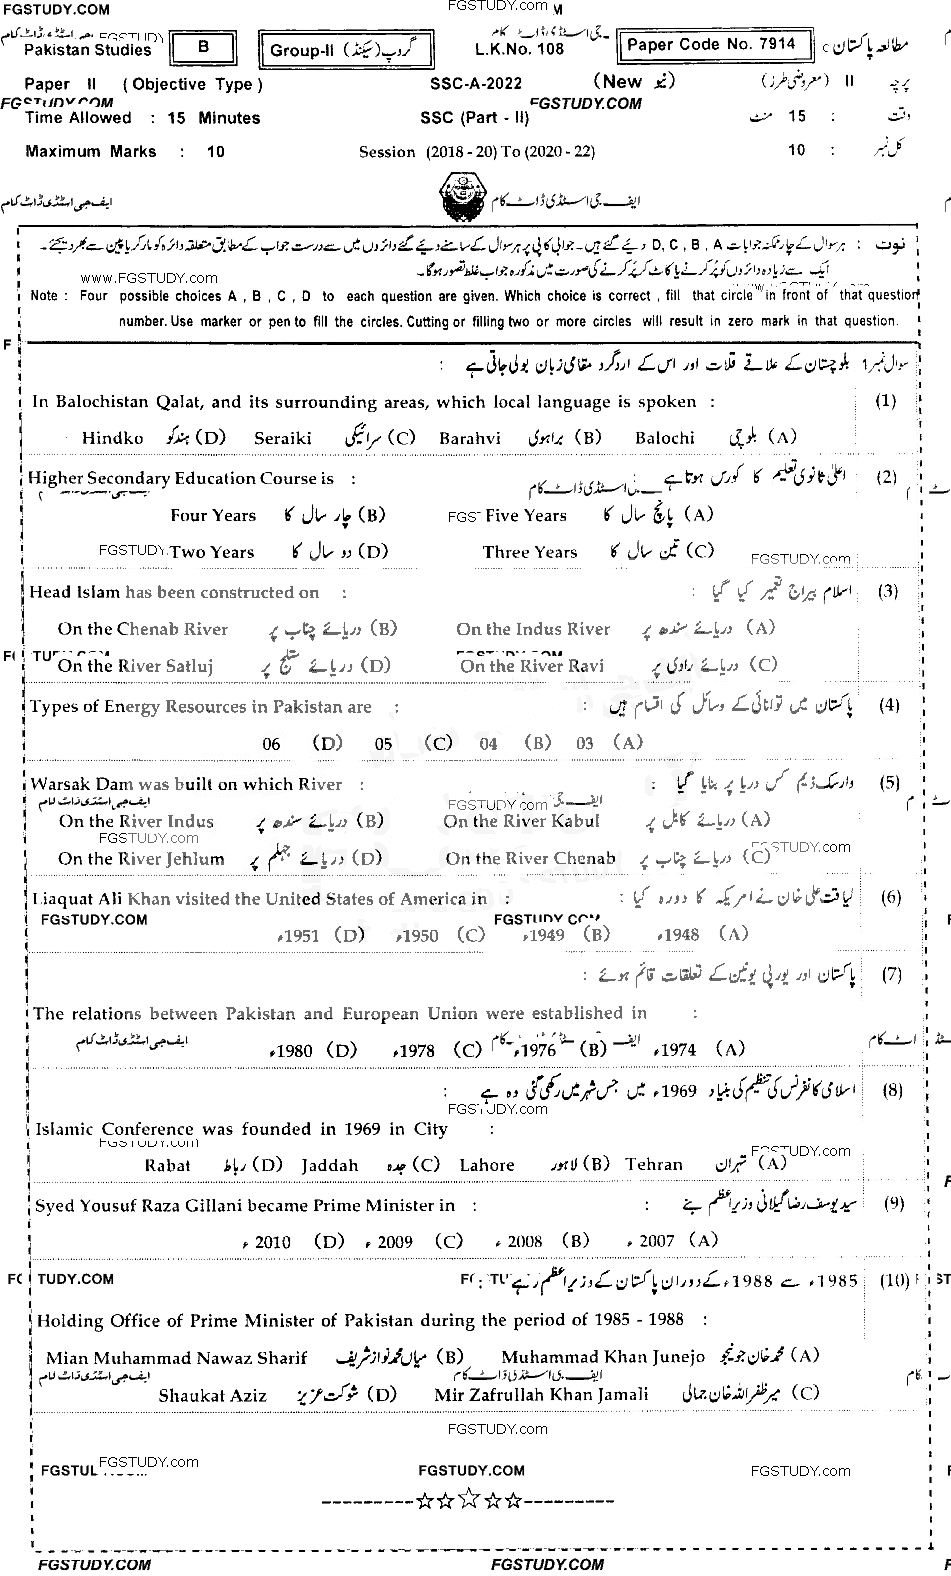 FGSTUDY.COM FGSTUDY.com M
Pakistan Studies B Group-II گروپ (سیکنڈ) L.K.No. 108 Paper Code No. 7914 مطالعہ پاکستان
Paper II ( Objective Type ) SSC-A-2022 (New نیو) II (معروضی طرز) پرچہ
FGSTUDY.COM FGSTUDY.COM
Time Allowed : 15 Minutes SSC (Part - II) وقت : 15 منٹ
Maximum Marks : 10 Session (2018 - 20) To (2020 - 22) کل نمبر : 10
ایف جی اسٹڈی ڈاٹ کام ایف جی اسٹڈی ڈاٹ کام
نوٹ : ہر سوال کے چار ممکنہ جوابات D, C, B, A دیئے گئے ہیں۔ جوابی کاپی پر ہر سوال کے سامنے دیئے گئے دائروں میں سے درست جواب کے مطابق متعلقہ دائرہ کو مارکر یا پین سے بھر دیجئے۔
ایک سے زیادہ دائروں کو پُر کرنے یا کاٹ کر پُر کرنے کی صورت میں مذکورہ جواب غلط تصور ہوگا۔
www.FGSTUDY.com
Note : Four possible choices A , B , C , D to each question are given. Which choice is correct , fill that circle in front of that question
number. Use marker or pen to fill the circles. Cutting or filling two or more circles will result in zero mark in that question.
سوال نمبر 1 بلوچستان کے علاقے قلات اور اس کے اردگرد مقامی زبان بولی جاتی ہے :
In Balochistan Qalat, and its surrounding areas, which local language is spoken : (1)
Hindko ہندکو (D) Seraiki سرائیکی (C) Barahvi براہوی (B) Balochi بلوچی (A)
Higher Secondary Education Course is : اعلیٰ ثانوی تعلیم کا کورس ہوتا ہے (2)
Four Years چار سال کا (B) Five Years پانچ سال کا (A)
FGSTUDY. Two Years دو سال کا (D) Three Years تین سال کا (C) FGSTUDY.com
Head Islam has been constructed on : اسلام بیراج تعمیر کیا گیا : (3)
On the Chenab River دریائے چناب پر (B) On the Indus River دریائے سندھ پر (A)
On the River Satluj دریائے ستلج پر (D) On the River Ravi دریائے راوی پر (C)
Types of Energy Resources in Pakistan are : پاکستان میں توانائی کے وسائل کی اقسام ہیں : (4)
06 (D) 05 (C) 04 (B) 03 (A)
Warsak Dam was built on which River : وارسک ڈیم کس دریا پر بنایا گیا : (5)
ایف جی اسٹڈی ڈاٹ کام FGSTUDY.com
On the River Indus دریائے سندھ پر (B) On the River Kabul دریائے کابل پر (A)
FGSTUDY.com FGSTUDY.com
On the River Jehlum دریائے جہلم پر (D) On the River Chenab دریائے چناب پر (C)
Liaquat Ali Khan visited the United States of America in : لیاقت علی خان نے امریکہ کا دورہ کیا : (6)
FGSTUDY.COM FGSTUDY.COM
1951ء (D) 1950ء (C) 1949ء (B) 1948ء (A)
پاکستان اور یورپی یونین کے تعلقات قائم ہوئے : (7)
The relations between Pakistan and European Union were established in :
ایف جی اسٹڈی ڈاٹ کام 1980ء (D) 1978ء (C) 1976ء (B) 1974ء (A)
اسلامی کانفرنس کی تنظیم کی بنیاد 1969ء میں جس شہر میں رکھی گئی وہ ہے : (8)
FGSTUDY.com
Islamic Conference was founded in 1969 in City :
FGSTUDY.com FGSTUDY.com
Rabat رباط (D) Jaddah جدہ (C) Lahore لاہور (B) Tehran تہران (A)
Syed Yousuf Raza Gillani became Prime Minister in : سید یوسف رضا گیلانی وزیراعظم بنے : (9)
2010ء (D) 2009ء (C) 2008ء (B) 2007ء (A)
TUDY.COM 1985ء سے 1988ء کے دوران پاکستان کے وزیراعظم رہے : (10)
Holding Office of Prime Minister of Pakistan during the period of 1985 - 1988 :
Mian Muhammad Nawaz Sharif میاں محمد نواز شریف (B) Muhammad Khan Junejo محمد خان جونیجو (A)
ایف جی اسٹڈی ڈاٹ کام
Shaukat Aziz شوکت عزیز (D) Mir Zafrullah Khan Jamali میر ظفر اللہ خان جمالی (C)
FGSTUDY.com
FGSTUDY.com FGSTUDY.COM FGSTUDY.com
FGSTUDY.COM FGSTUDY.COM